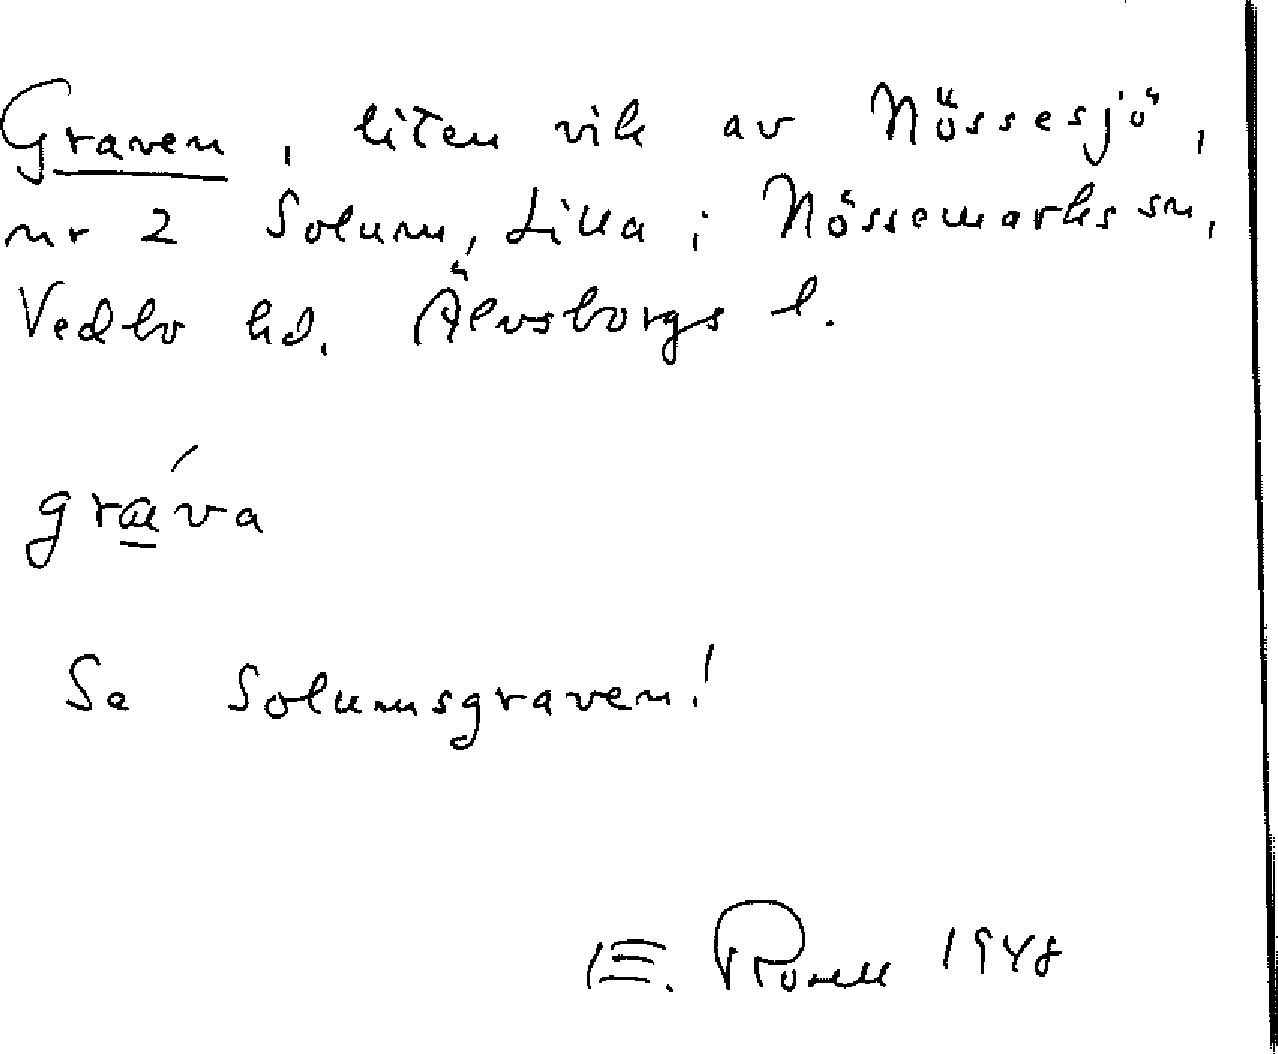 Graven, liten vik av Nössesjö,
nr 2 Solum, Lilla i Nössemarks sn,
Vedbo hd. Älvsborgs l.
græ´va
Se Solumsgraven!
E. Rosell 1948